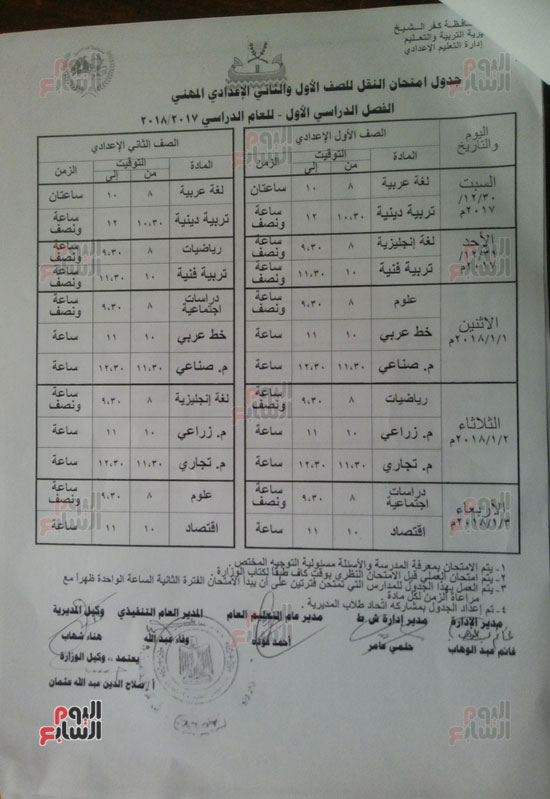 محافظة كفر الشيخ
مديرية التربية والتعليم
إدارة التعليم الإعدادي
جدول امتحان النقل للصف الأول والثاني الإعدادي المهني
الفصل الدراسي الأول - للعام الدراسي ٢٠١٨/٢٠١٧
اليوم والتاريخ الصف الأول الإعدادي الصف الثاني الإعدادي
المادة التوقيت الزمن المادة التوقيت الزمن
من إلى من إلى
السبت ١٢/٣٠/ ٢٠١٧م لغة عربية ٨ ١٠ ساعتان لغة عربية ٨ ١٠ ساعتان
تربية دينية ١٠،٣٠ ١٢ ساعة ونصف تربية دينية ١٠،٣٠ ١٢ ساعة ونصف
الأحد لغة إنجليزية ٨ ٩،٣٠ ساعة ونصف رياضيات ٨ ٩،٣٠ ساعة ونصف
تربية فنية ١٠ ١١،٣٠ ساعة ونصف تربية فنية ١٠ ١١،٣٠ ساعة ونصف
الاثنين ٢٠١٨/١/١م علوم ٨ ٩،٣٠ ساعة ونصف دراسات اجتماعية ٨ ٩،٣٠ ساعة ونصف
خط عربي ١٠ ١١ ساعة خط عربي ١٠ ١١ ساعة
م. صناعي ١١،٣٠ ١٢،٣٠ ساعة م. صناعي ١١،٣٠ ١٢،٣٠ ساعة
الثلاثاء ٢٠١٨/١/٢م رياضيات ٨ ٩،٣٠ ساعة ونصف لغة إنجليزية ٨ ٩،٣٠ ساعة ونصف
م. زراعي ١٠ ١١ ساعة م. زراعي ١٠ ١١ ساعة
م. تجاري ١١،٣٠ ١٢،٣٠ ساعة م. تجاري ١١،٣٠ ١٢،٣٠ ساعة
الأربعاء ٢٠١٨/١/٣م دراسات اجتماعية ٨ ٩،٣٠ ساعة ونصف علوم ٨ ٩،٣٠ ساعة ونصف
اقتصاد ١٠ ١١ ساعة اقتصاد ١٠ ١١ ساعة
١ - يتم الامتحان بمعرفة المدرسة والأسئلة مسئولية التوجيه المختص.
٢ - يتم امتحان العملي قبل الامتحان النظري بوقت كاف طبقا لكتاب الوزارة.
٣ - يتم العمل بهذا الجدول للمدارس التي تمتحن فترتين على أن يبدأ الامتحان الفترة الثانية الساعة الواحدة ظهراً مع
مراعاة الزمن لكل مادة.
٤ - تم إعداد الجدول بمشاركه اتحاد طلاب المديرية.
مدير الإدارة مدير إدارة ش.ط مدير عام التعليم العام المدير العام التنفيذي وكيل المديرية
غانم عبد الوهاب حلمي عامر أحمد فوده وفاء عبدالله هناء شهاب
يعتمد .. وكيل الوزارة
أ / صلاح الدين عبد الله عثمان
اليوم السابع